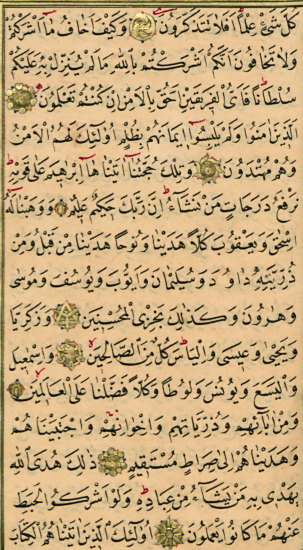 كل شيء علما افلا تتذكرون وكيف اخاف ما اشركتم
ولا تخافون انكم اشركتم بالله ما لم ينزل به عليكم
سلطانا فاي الفريقين احق بالامن ان كنتم تعلمون
الذين امنوا ولم يلبسوا ايمانهم بظلم اولئك لهم الامن
وهم مهتدون وتلك حجتنا اتيناها ابرهيم على قومه
نرفع درجات من نشاء ان ربك حكيم عليم ووهبنا له
اسحق ويعقوب كلا هدينا ونوحا هدينا من قبل ومن
ذريته داود وسليمان وايوب ويوسف وموسى
وهرون وكذلك نجزي المحسنين وزكريا
ويحيى وعيسى والياس كل من الصالحين واسمعيل
واليسع ويونس ولوطا وكلا فضلنا على العالمين
ومن ابائهم وذرياتهم واخوانهم واجتبيناهم
وهديناهم الى صراط مستقيم ذلك هدى الله
يهدي به من يشاء من عباده ولو اشركوا لحبط
عنهم ما كانوا يعملون اولئك الذين اتيناهم الكتاب